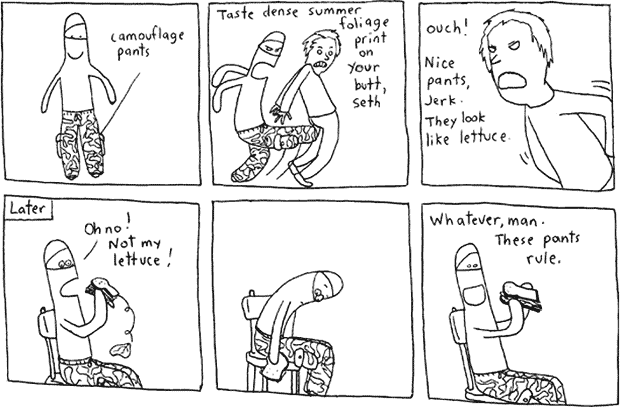 camouflage
pants
Taste dense summer
foliage
print
on
your
butt,
seth
ouch!
Nice
pants,
Jerk.
They look
like lettuce.
Later
Oh no!
Not my
lettuce!
Whatever, man.
These pants
rule.